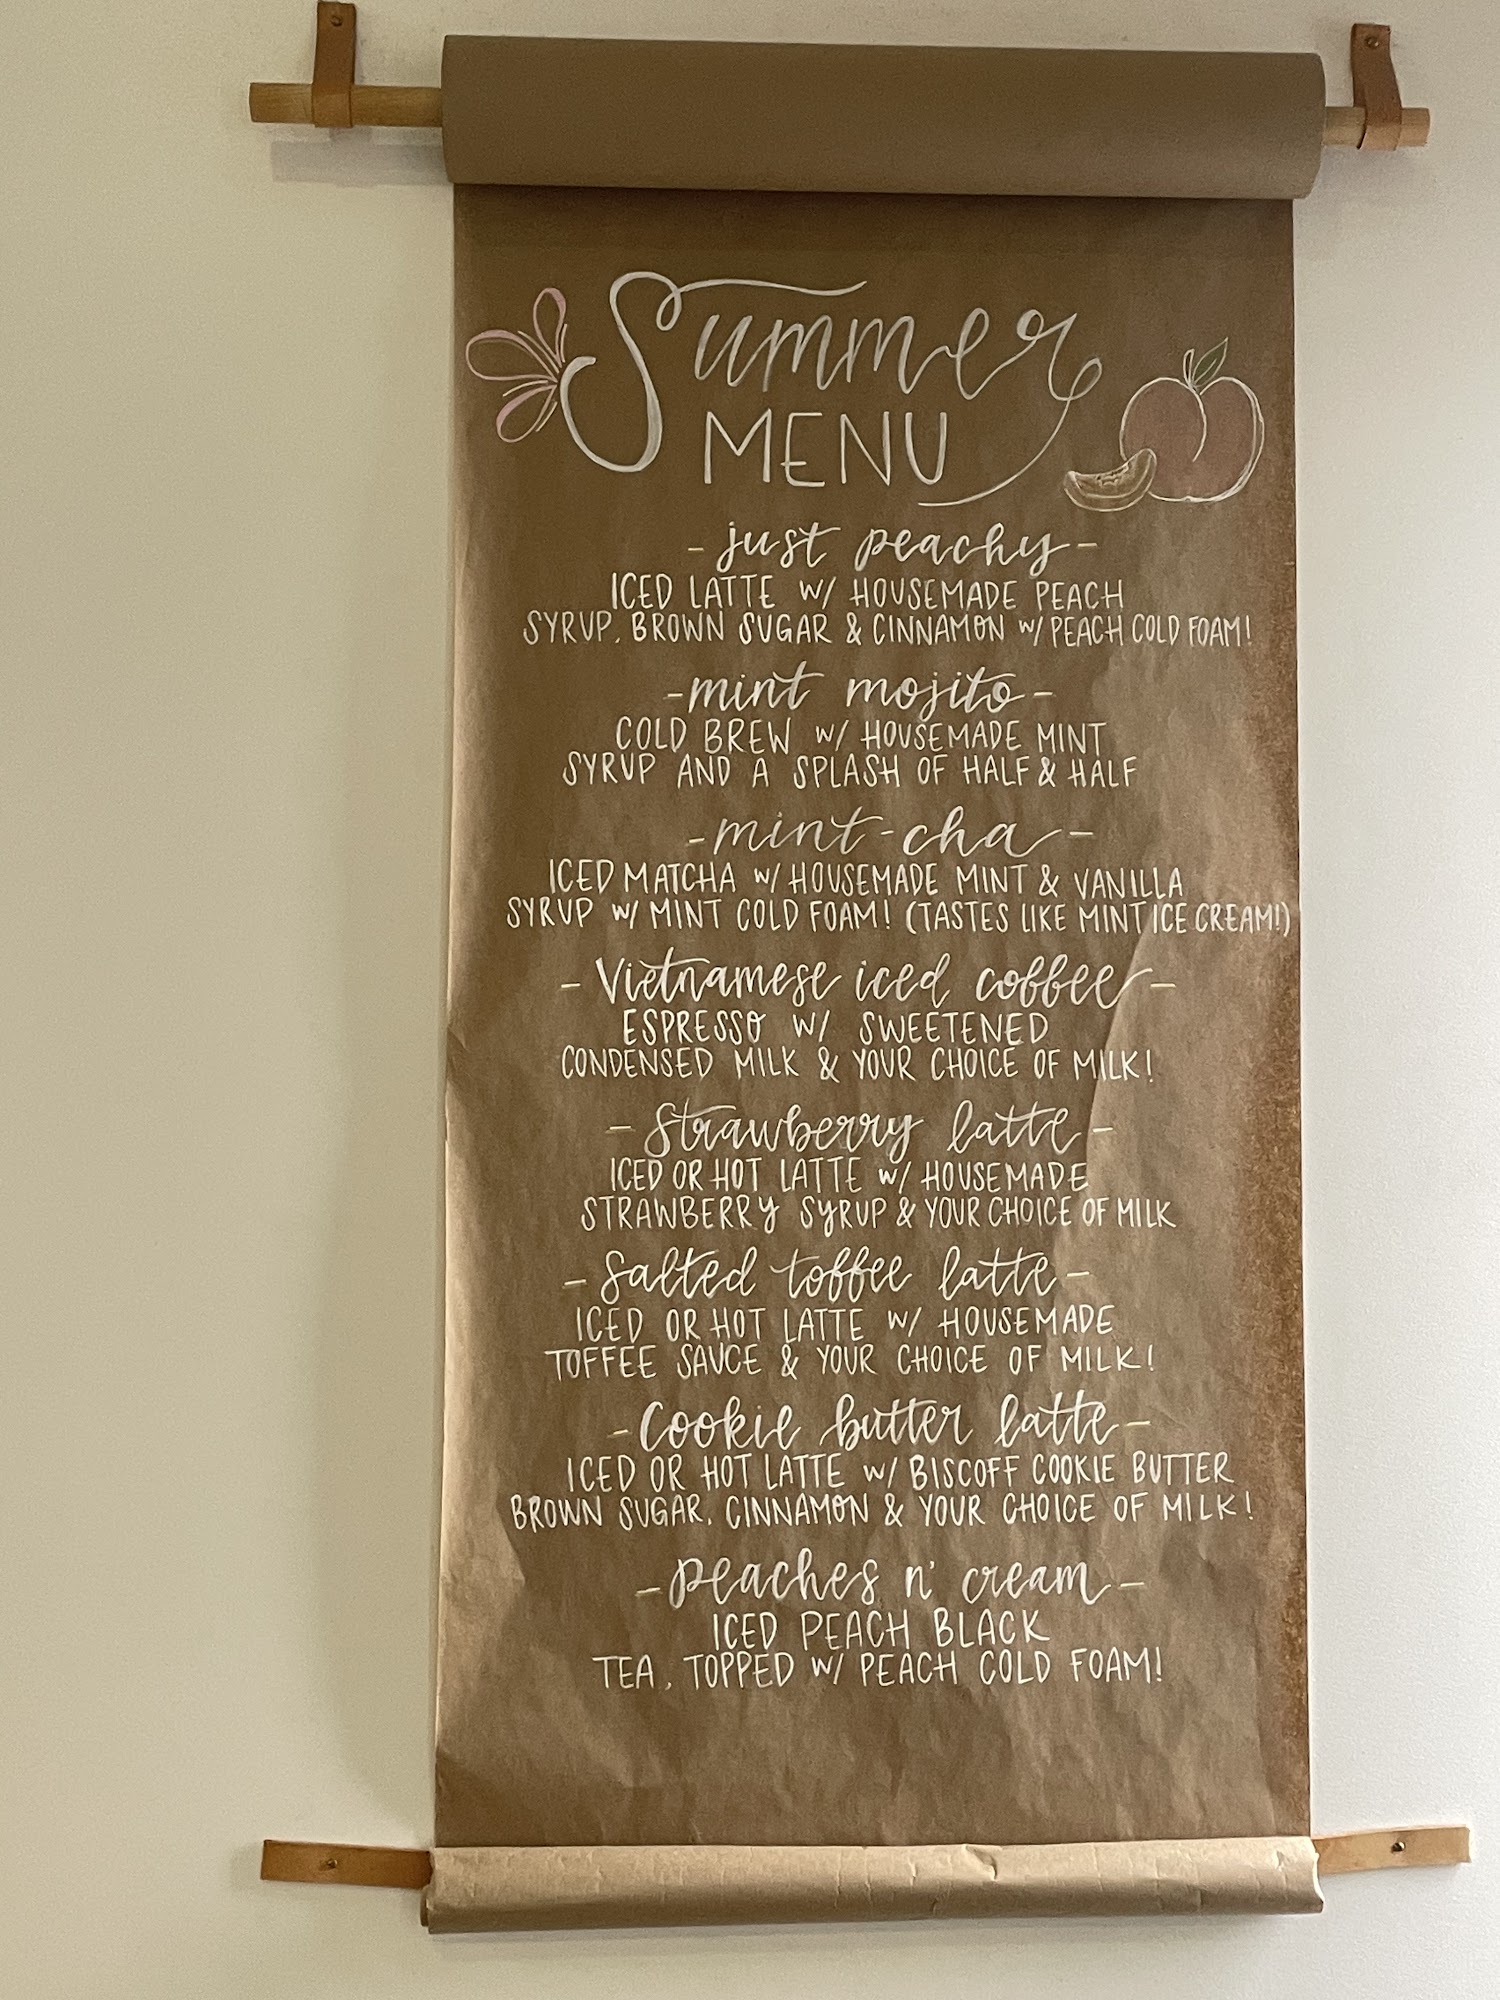 Summer
MENU
- just peachy -
ICED LATTE W/ HOUSEMADE PEACH
SYRUP, BROWN SUGAR & CINNAMON W/ PEACH COLD FOAM!
- mint mojito -
COLD BREW W/ HOUSEMADE MINT
SYRUP AND A SPLASH OF HALF & HALF
- mint-cha -
ICED MATCHA W/ HOUSEMADE MINT & VANILLA
SYRUP W/ MINT COLD FOAM! (TASTES LIKE MINT ICE CREAM!)
- Vietnamese iced coffee -
ESPRESSO W/ SWEETENED
CONDENSED MILK & YOUR CHOICE OF MILK!
- Strawberry latte -
ICED OR HOT LATTE W/ HOUSEMADE
STRAWBERRY SYRUP & YOUR CHOICE OF MILK
- Salted toffee latte -
ICED OR HOT LATTE W/ HOUSEMADE
TOFFEE SAUCE & YOUR CHOICE OF MILK!
- Cookie butter latte -
ICED OR HOT LATTE W/ BISCOFF COOKIE BUTTER
BROWN SUGAR, CINNAMON & YOUR CHOICE OF MILK!
- peaches n' cream -
ICED PEACH BLACK
TEA, TOPPED W/ PEACH COLD FOAM!